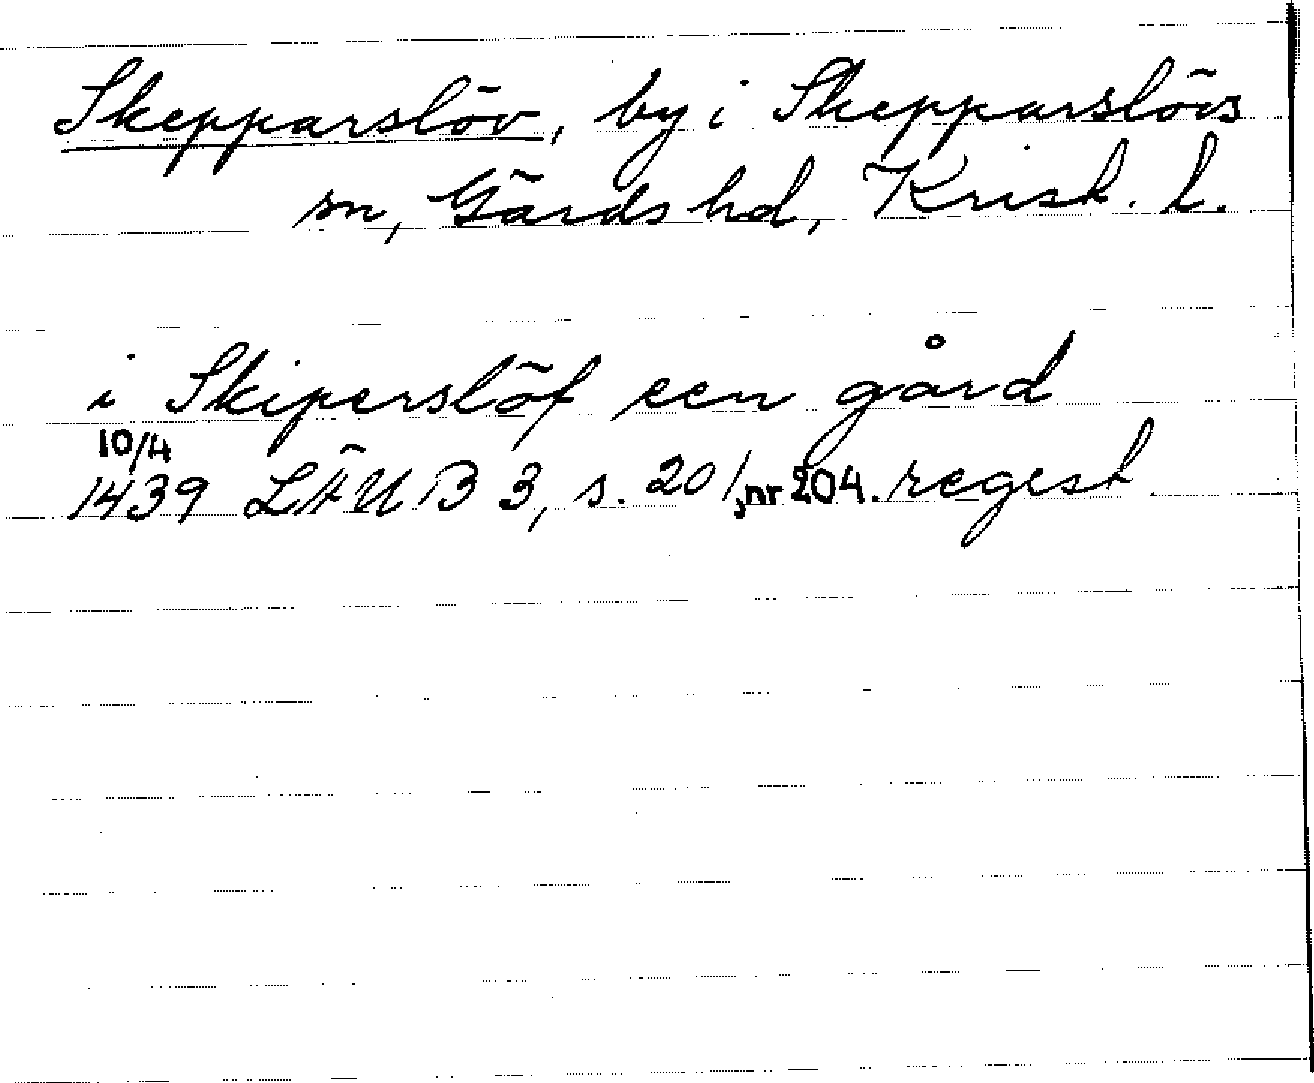 Skepparslöv, by i Skepparslövs
sn, Gärds hd, Krist. l.
i Skiperslöf een gård
10/4
1439 LÄUB 3, s. 201, nr 204. regest